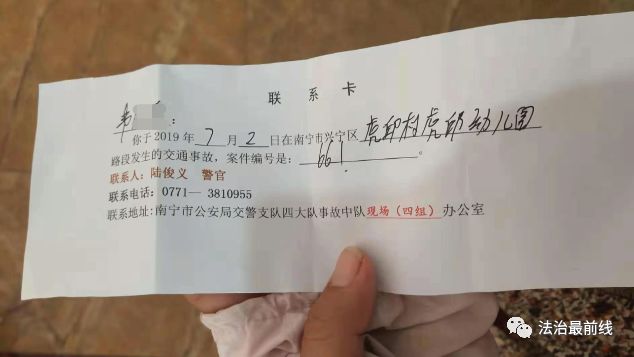 联系卡
韦 :
你于2019年7月2日在南宁市兴宁区虎邱村虎邱幼儿园
路段发生的交通事故,案件编号是:661。
联系人:陆俊义 警官
联系电话:0771—3810955
联系地址:南宁市公安局交警支队四大队事故中队现场(四组)办公室
法治最前线